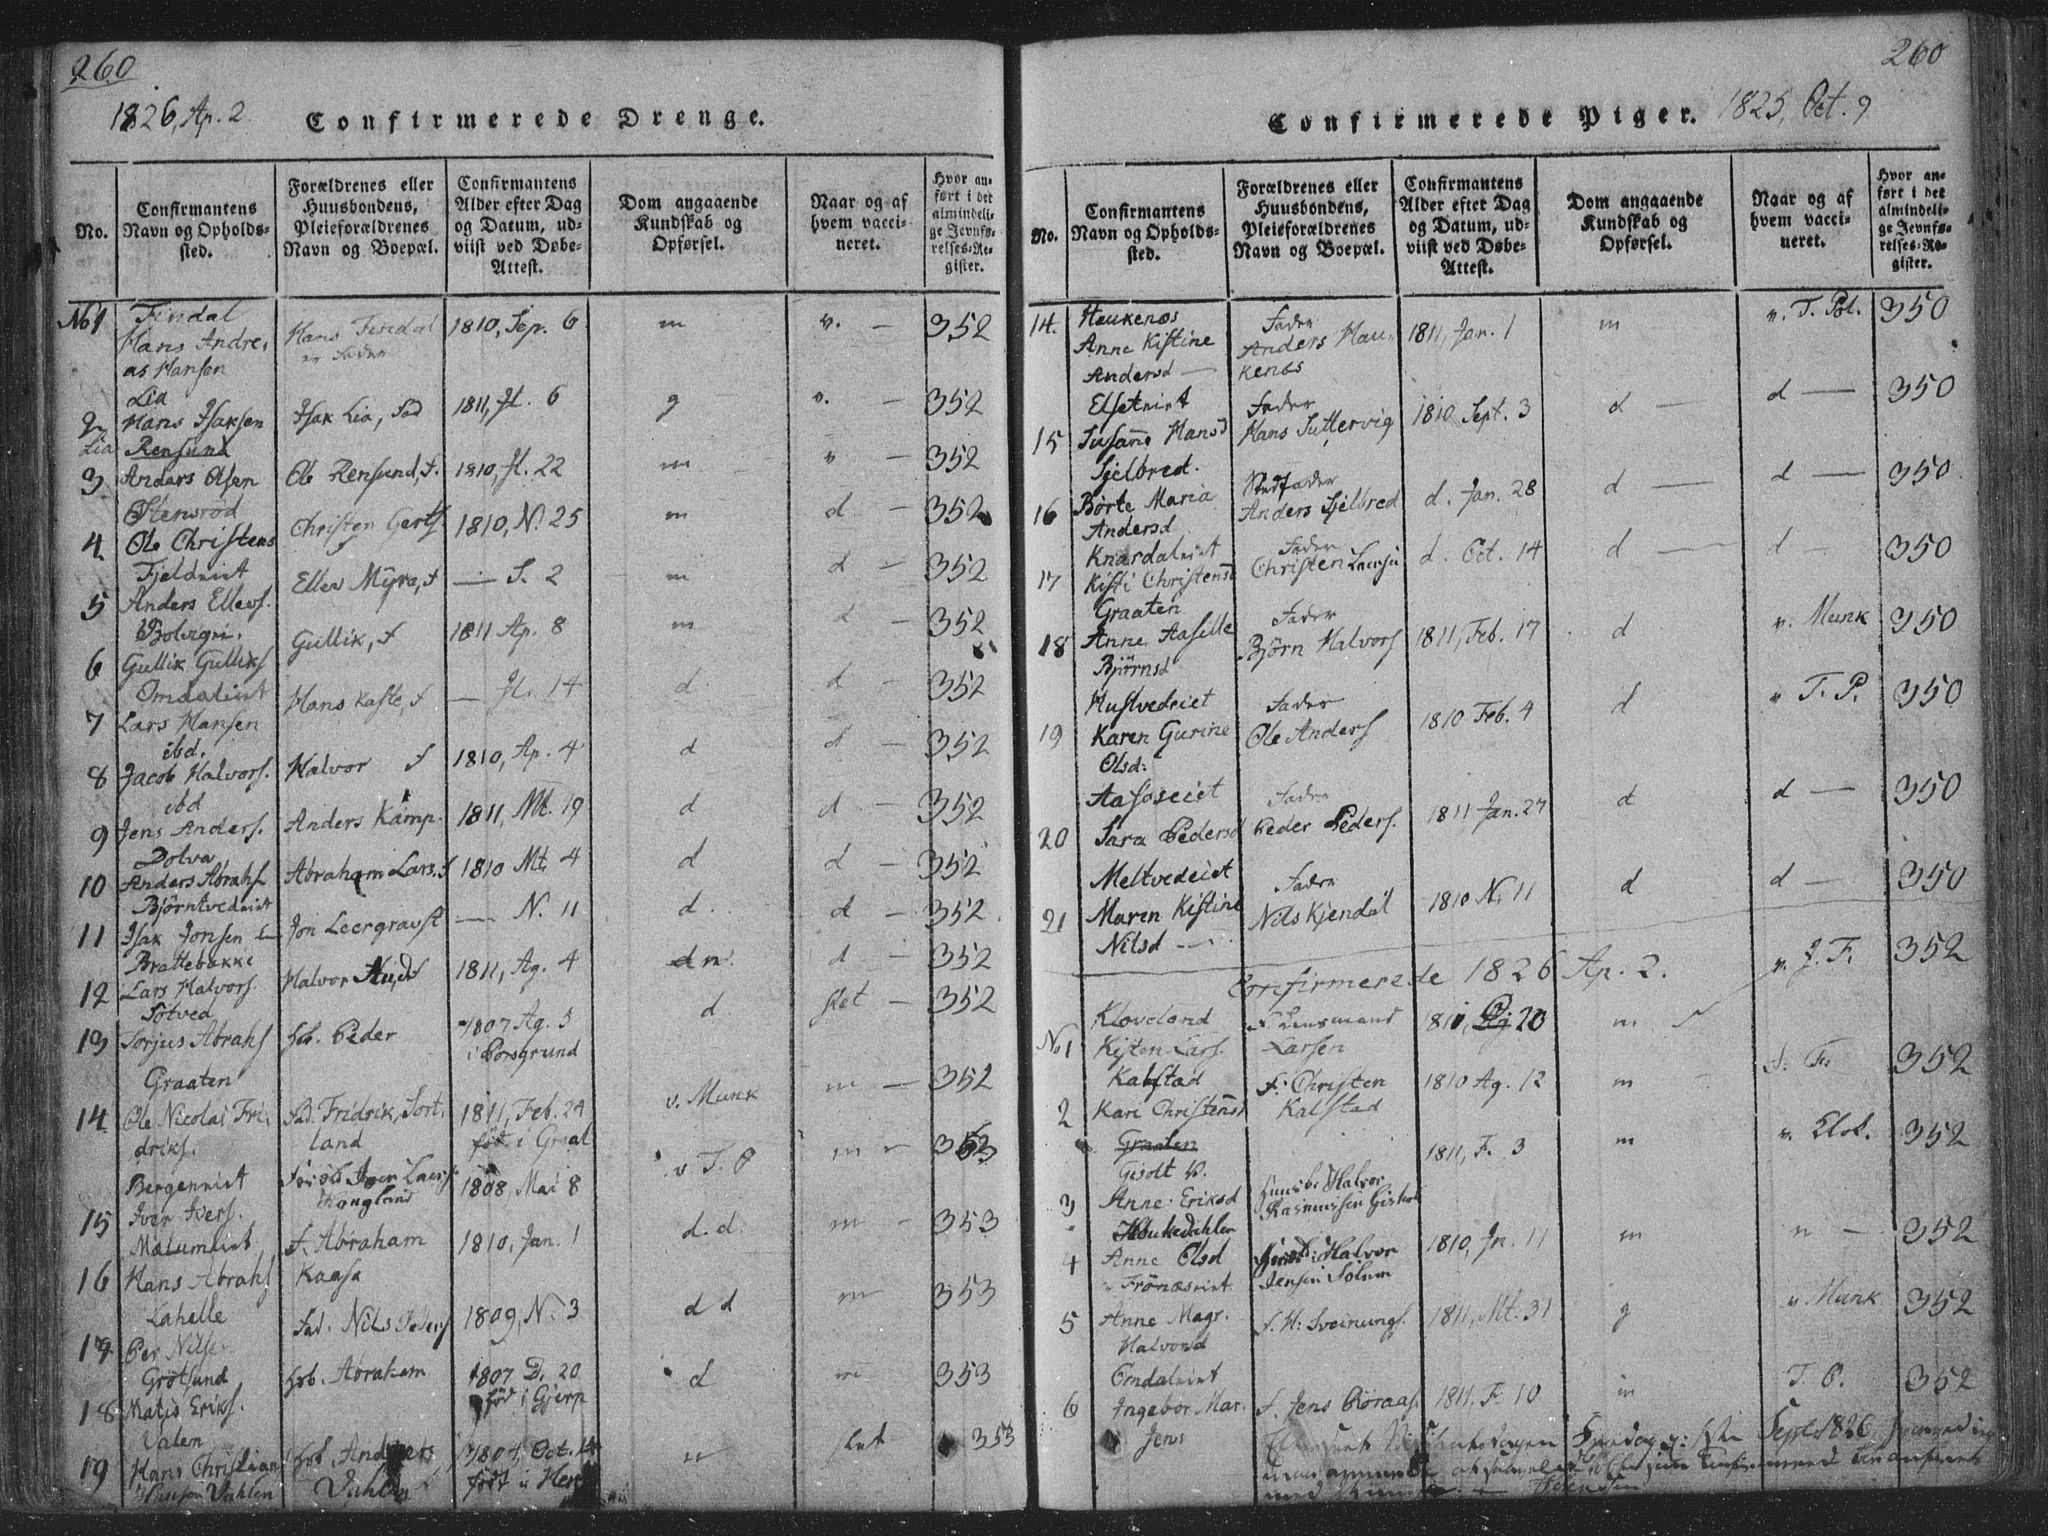 260
1826, Ap. 2
Confirmerede Drenge.
No.
Confirmantens Navn og Opholdssted.
Forældrenes eller Huusbondens, Pleieforældrenes Navn og Boepæl.
Confirmantens Alder efter Dag og Datum, udviist ved Døbe-Attest.
Dom angaaende Kundskab og Opførsel.
Naar og af hvem vaccineret.
Hvor anført i det almindelige Jevnførelses-Register.
No 1 Findal
Hans Andre- Hans Findal 1810, Sep. 6 m v. — 352
as Hansen er Fader
Lia
2 Hans Isaksen Isak Lia, Fad 1811, Jl. 6 g v. — 352
Lia Rensund
3 Anders Olsen Ole Rensund, f. 1810, Jl. 22 m v — 352
Stensrød
4. Ole Christens Christen Gerts. 1810, N. 25 m d — 352
Fjeldeiet
5 Anders Ellevs. Ellev Myra, f — S. 2 m d — 352
Bolvigei.
6 Gullik Gulliks Gullik, f 1811 Ap. 8 m d — 352
Omdaleiet
7 Lars Hansen Hans Kaste, f — Jl. 14 d d — 352
ibd.
8 Jacob Halvors. Halvor f 1810, Ap. 4 d d — 352
ibd
9 Jens Anders. Anders Kamp. 1811, Mt. 19 d d — 352
Dolva
10 Anders Abrahs Abraham Lars. f 1810 Mt. 4 d d — 352
Björntvedeiet
11 Isak Jonsen Jon Leergravst — N. 11 d. d — 352
Brattebakke
12 Lars Halvors. Halvor 1811, Ag. 4 d — 352
Sötved
13 Torjus Abrahs hb. Peder 1807 Ag. 5 d. slet — 352
i Porsgrund
Graaten
14. Ole Nicolai Fri- Fad. Fridrik, Sort- 1811, Feb. 24 v. Munk m — 352
driks. land fød. i
Bergeneiet
15 Iver Ivers. 1808, Mai 8 v T. P m
Mælumeiet
16 Hans Abrahs f. Abraham Kaasa 1810, Jan. 1 d. d m — 353
Lahelle
17 Per Nils Fad. Nils Peders 1809, N. 3 d d m 353
Grötsund
18 Matis Eriks. hb. Abraham 1807 D. 20 d m 353
fød i Gjerp
Valen
19 Hans Christian hb. Anders Oct. 353
Vahlen Vahlen født i
260
Confirmerede Piger. 1825, Oct. 9
No.
Confirmantens Navn og Opholdssted.
Forældrenes eller Huusbondens, Pleieforældrenes Navn og Boepæl.
Confirmantens Alder efter Dag og Datum, udviist ved Døbe-Attest.
Dom angaaende Kundskab og Opførsel.
Naar og af hvem vaccineret.
Hvor anført i det almindelige Jevnførelses-Register.
14. Haukenæs Fader m v. T. Pol. 350
Anne Kistine Anders Hau- 1811, Jan. 1
Andersd — kenæs
Elseteiet Fader
15 Susanne Hansd Hans Suttervig 1810 Sept. 3 d — d — 350
Sjelbred. Stedfader
16 Børte Maria Anders Sjelbred d. Jan. 28 d — d — 350
Andersd
Knardaleiet Fader
17 Kisti Christensd Christen Larsen d. Oct. 14 d — d — 350
Graaten Fader
18 Anne Aasille Björn Halvors 1811, Feb. 17 d v. Munk 350
Björnsd
Hustvedeiet Fader
19 Karen Gurine Ole Anders 1810 Feb. 4 d v T. P. 350
Olsd:
Aasoseiet Fader
20 Sara Pedersd Peder Peders. 1811 Jan. 27 d d — 350
Meltvedeiet Fader
21 Maren Kistine Nils Kjendal 1810 N. 11 d d — 350
Nilsd —
Confirmerede 1826 Ap. 2.
Kloveland f Lensmand 20 m v. J. F. 352
No 1 Kisten Lars. Larsen
Kalstad
2 Kari Christensd f. Christen Kalstad 1810 Ag. 12 m F. 352
Graaten
Gisolt
3 Anne Eriksd Halvor Rasmussen 1811, F. 3 m v. 352
4 Anne Olsd Halvor Jensen Solum 1810, Jn. 11 m n — 352
Frönæseiet
5 Anne Magr. f. H: Sveinungs. 1811, Mt. 31 g v Munk 352
Halvorsd
Omdaleiet
6 Ingebor Mar. f. Jens 1811, F. 10 m T. P. 352
Jens
Sept. 1826